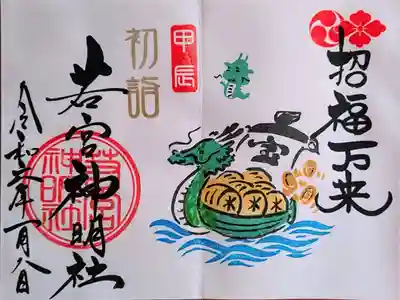 招福万来
宝
米 米
甲辰
初詣
若宮神明社
令和六年一月八日